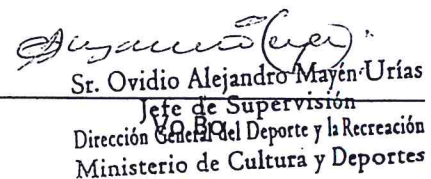 Sr. Ovidio Alejandro Mayén Urías
Jefe de Supervisión
Vo.Bo.
Dirección General del Deporte y la Recreación
Ministerio de Cultura y Deportes